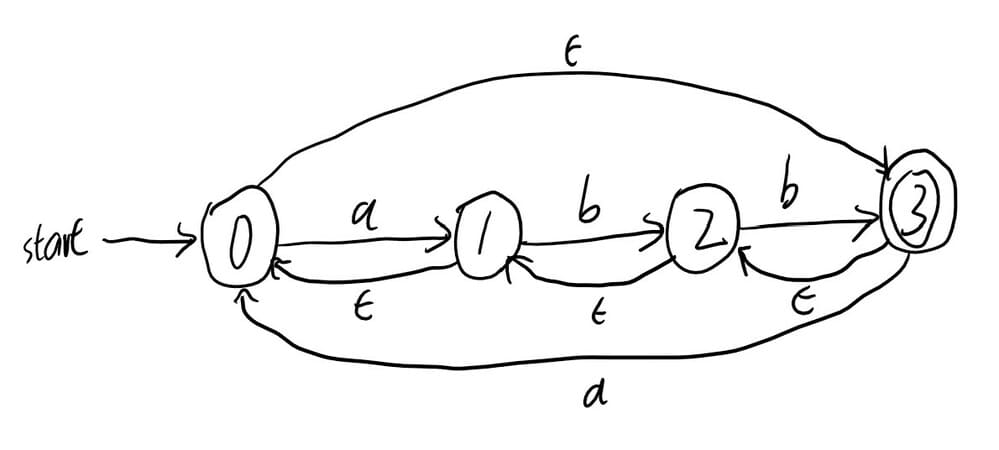 ϵ
start
0
a
1
b
2
b
3
ϵ
ϵ
ϵ
a